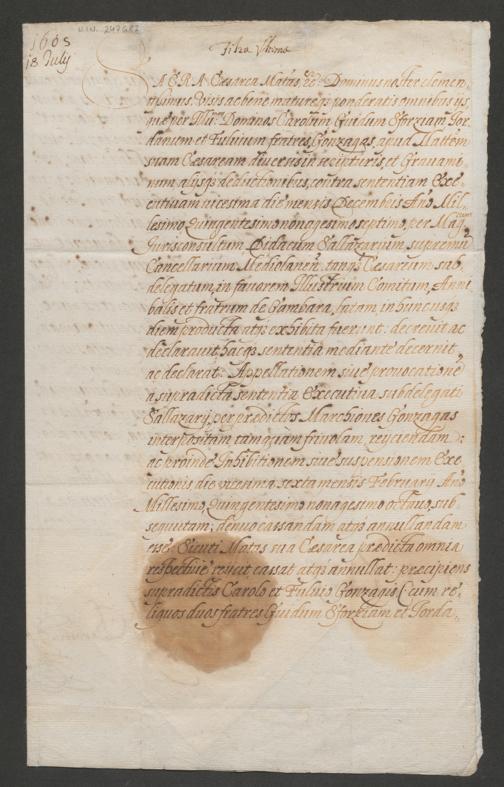 1605
18 July
VIN. 247687
Filza Vltima
SACRA Cæsarea Matas, &c. Dominus noster clemen-
tissimus, Visis ac bene mature q ponderatis omnibus ijs,
que per Ill.mos Dominos Carolum, Guidum Sforziam, Jor-
danum et Fuluium fratres Gonzagas, apud Mattem
suam Cæsaream diuersis in scripturis et Grauami-
num alijsq deductionibus, contra sententiam Exe-
cutiuam vicesima die mensis Decembris Año Mil-
lesimo Quingentesimo nonagesimo septimo, per Mag.cum
Jurisconsultum Didacum Sallazarium, supremū
Cancellarium Mediolanen, tanq Cæsareum sub-
delegatum, in fauorem Illustrium Comitum, Anni
balis et fratrum de Gambara, latam, in hunc usq
diem producta atq exhibita fuerint: decreuit ac
declarauit hacq sententia mediante decernit
ac declarat: Appellationem siue prouocationē
a supradicta sententia Executiua subdelegati
Sallazarij, per prædictos Marchiones Gonzagas
interpositam, tamquam friuolam, reijciendam:
ac proinde Inhibitionem siue suspensionem Exe-
cutionis die vicesima sexta mensis February Año
Millesimo Quingentesimo nonagesimo octauo sub-
sequutam; denuo cassandam atq annullandam
esse, Sicuti Matas sua Cæsarea prædicta omnia
respectiue reuocit cassat atq annullat: præcipiens
supradictis Carolo et Fuluio Gonzagis (cum re-
liquos duos fratres Guidum Sforziam et Jorda-